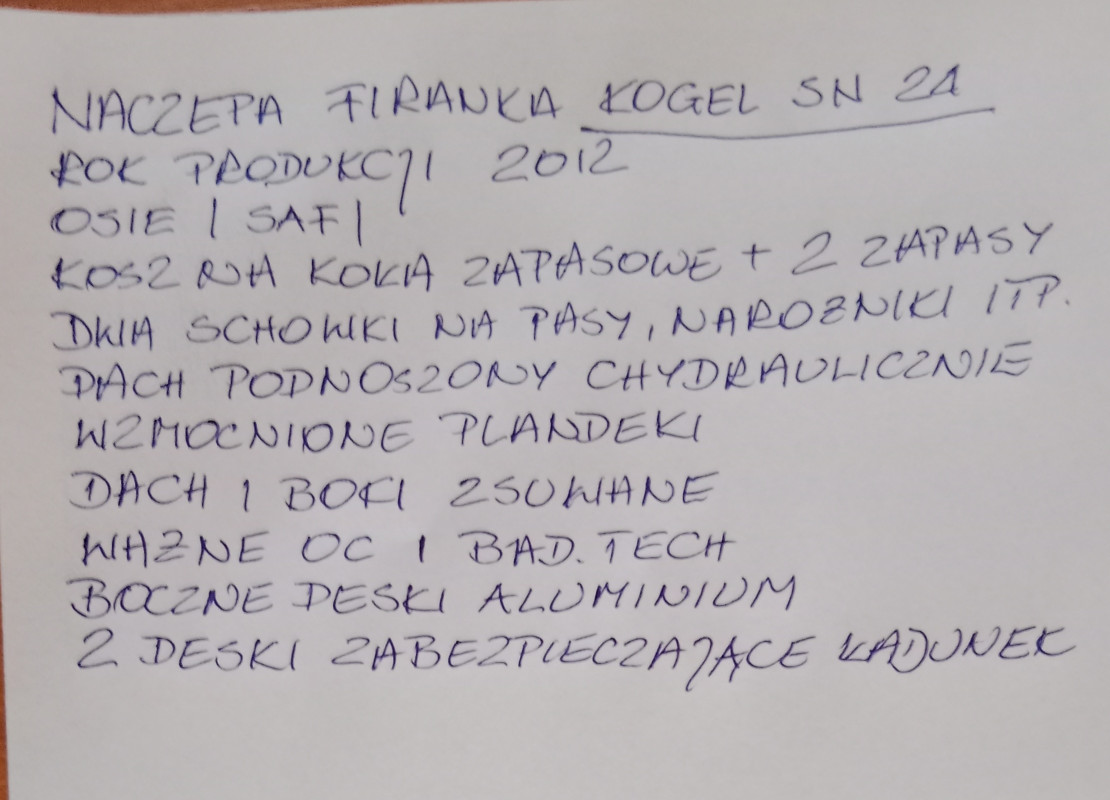 NACZEPA FIRANKA KOGEL SN 24
ROK PRODUKCJI 2012
OSIE | SAF |
KOSZ NA KOŁA ZAPASOWE + 2 ZAPASY
DWA SCHOWKI NA PASY, NAROŻNIKI ITP.
DACH PODNOSZONY CHYDRAULICZNIE
WZMOCNIONE PLANDEKI
DACH I BOKI ZSUWANE
WAŻNE OC I BAD. TECH
BOCZNE DESKI ALUMINIUM
2 DESKI ZABEZPIECZAJĄCE ŁADUNEK